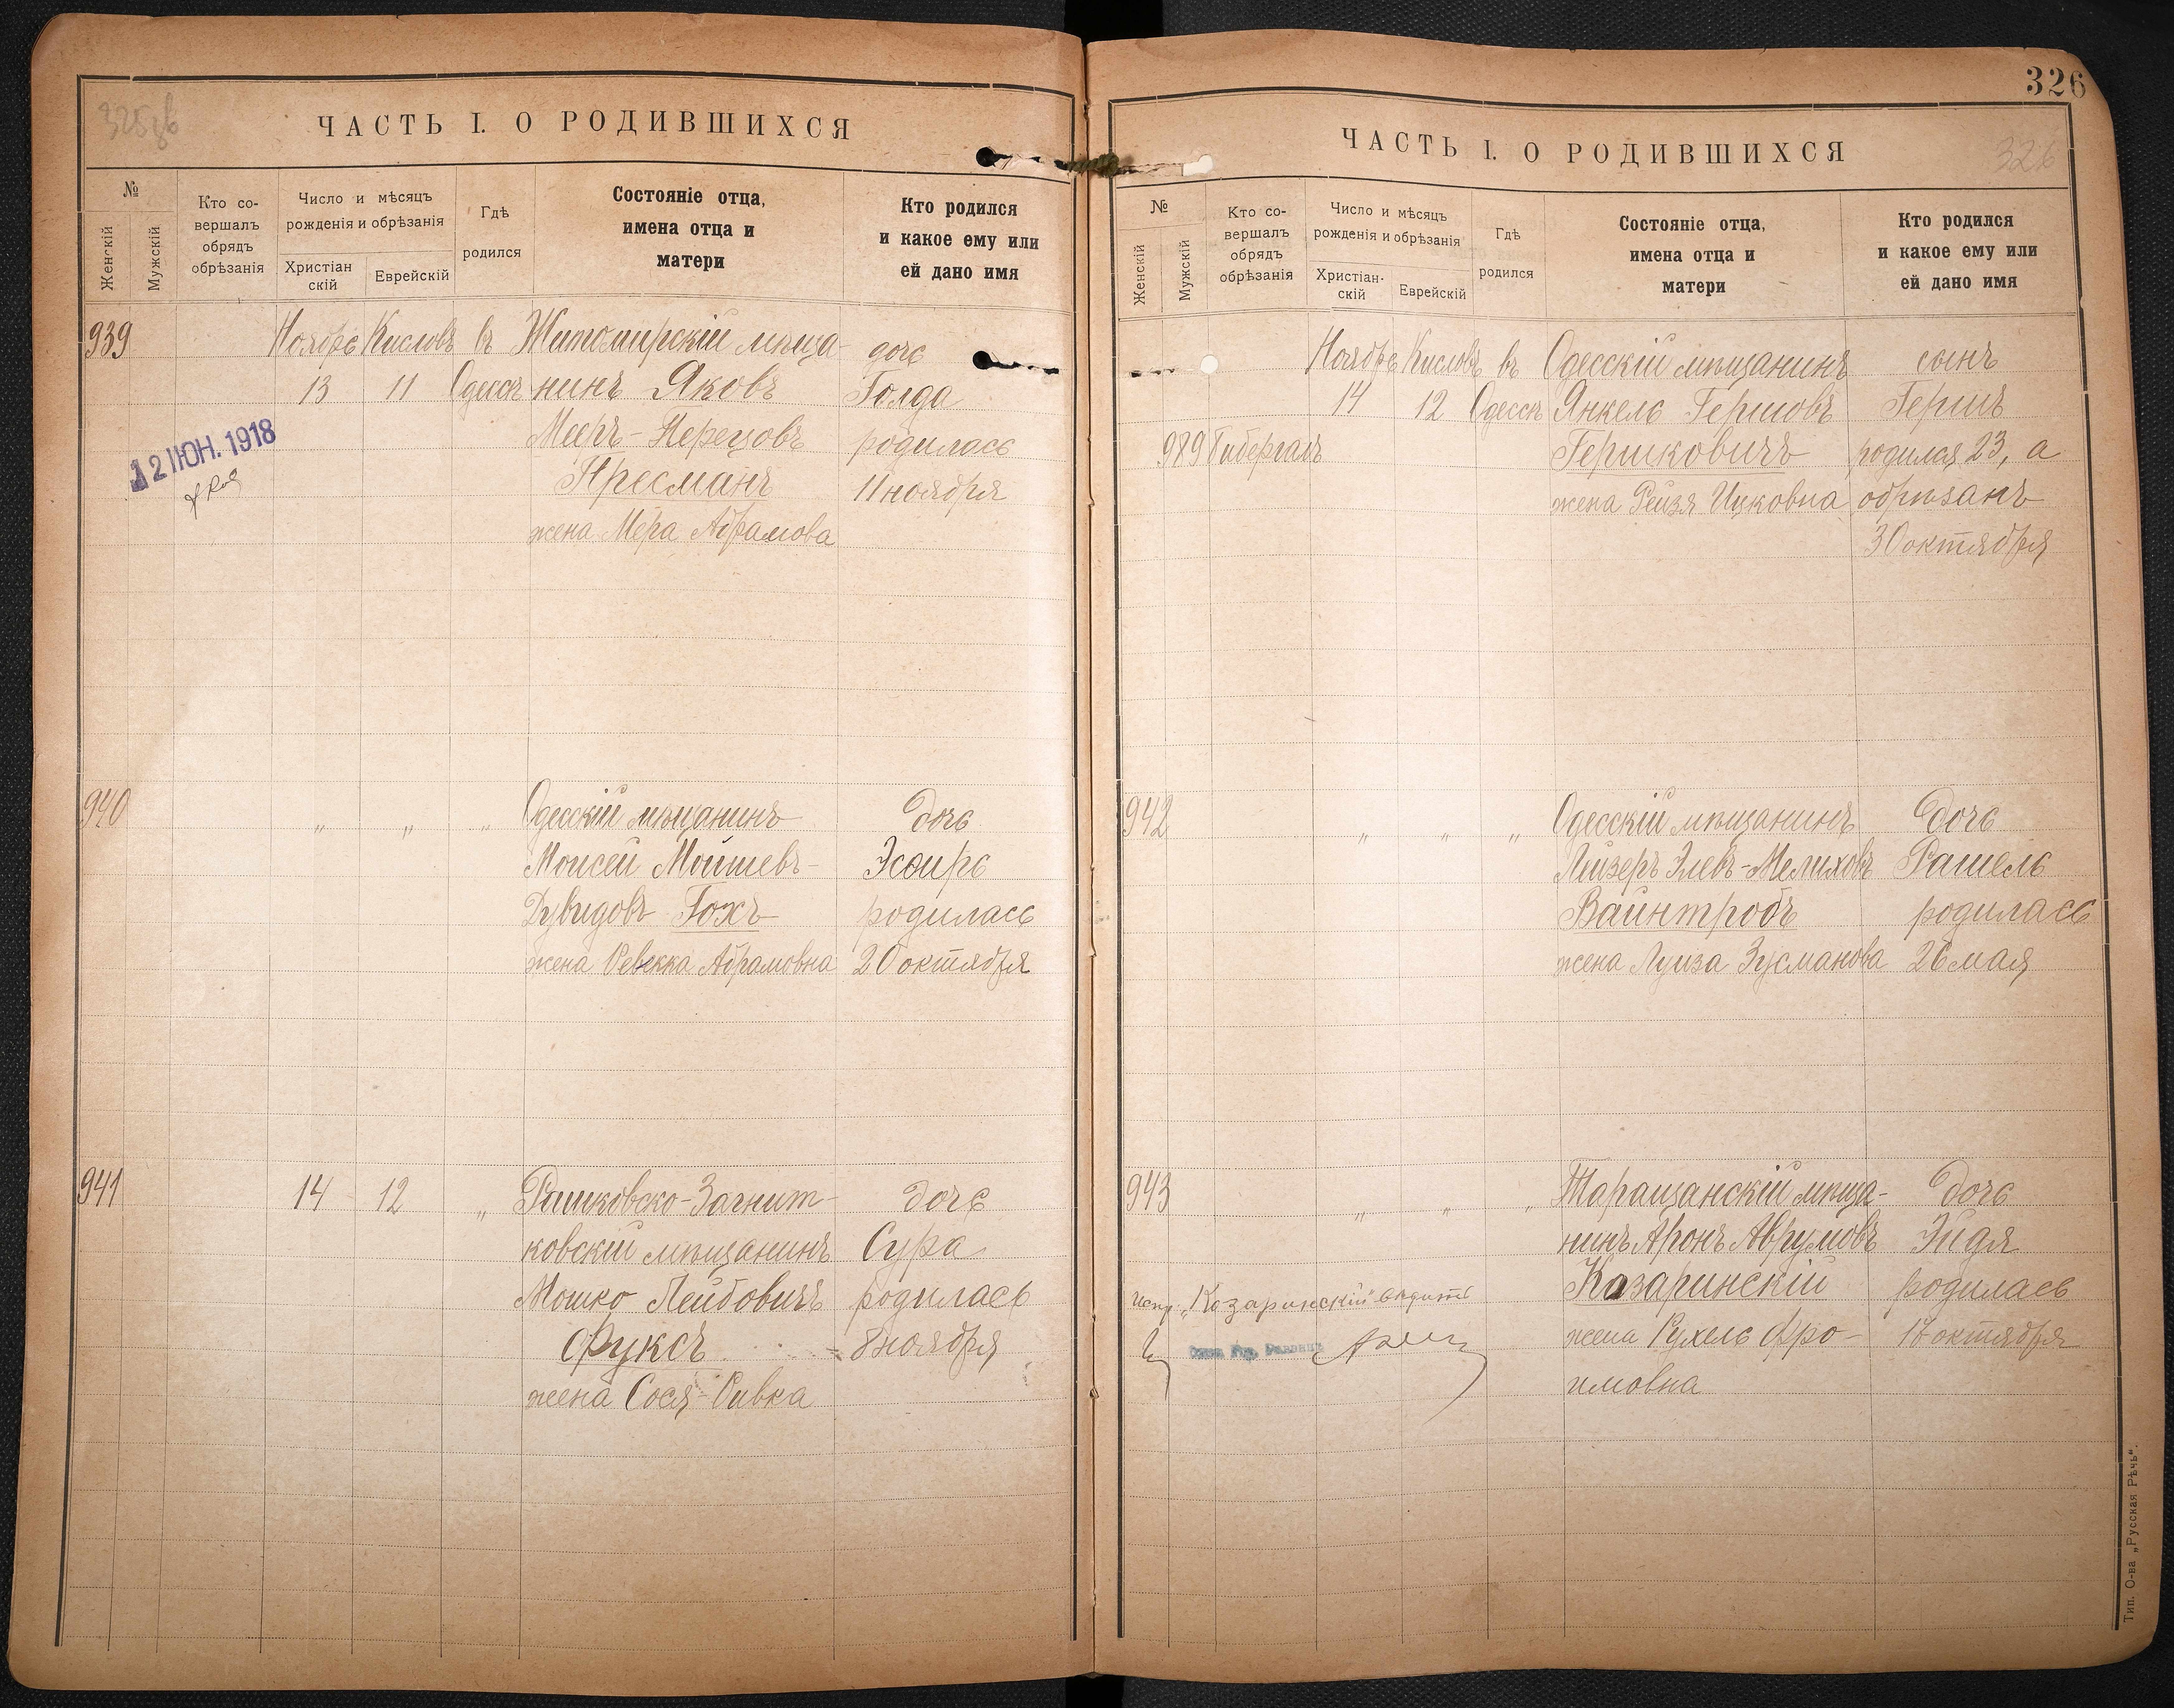 325 зв
ЧАСТЬ I. О РОДИВШИХСЯ
№
Женскій
Мужскій
Кто со-
вершалъ
обрядъ
обрѣзанія
Число и мѣсяцъ
рожденія и обрѣзанія
Христіан
скій
Еврейскій
Гдѣ
родился
Состояніе отца,
имена отца и
матери
Кто родился
и какое ему или
ей дано имя
939 Ноябрь Кислевъ въ Житомирскій мѣща- дочь
13 11 Одессѣ нинъ Яковъ Голда
Мееръ-Перецовъ родилась
Пресманъ 11 ноября
жена Мера Абрамова
12 ІЮН. 1918
940 " " " Одесскій мѣщанинъ дочь
Моисей Мойшевъ- Эсѳирь
Дувидовъ Гохъ родилась
жена Ревекка Абрамовна 20 октября
941 14 12 " Рашковско-Загнит- дочь
ковскій мѣщанинъ Сура
Мошко Лейбовичъ родилась
Фуксъ 8 ноября
жена Сося-Ривка
326
ЧАСТЬ I. О РОДИВШИХСЯ
326
№
Женскій
Мужскій
Кто со-
вершалъ
обрядъ
обрѣзанія
Число и мѣсяцъ
рожденія и обрѣзанія
Христіан-
скій
Еврейскій
Гдѣ
родился
Состояніе отца,
имена отца и
матери
Кто родился
и какое ему или
ей дано имя
Ноябрь Кислевъ въ Одесскій мѣщанинъ сынъ
14 12 Одессѣ Янкель Гершовъ Гершъ
989 Гибергалъ Гершковичъ родился 23, а
жена Рейзя Ицковна обрѣзанъ
30 октября
942 " " " Одесскій мѣщанинъ дочь
Лейзеръ Элевъ-Мелиховъ Рашель
Вайнтробъ родилась
жена Луиза Зусманова 26 мая
943 " " " Таращанскій мѣща- дочь
нинъ Аронъ Аврумовъ Эйдя
Казаринскій родилась
жена Рухель Фро- 17 октября
имовна
испр. „Казаринскій"
Тип. О-ва „Русская Рѣчь".